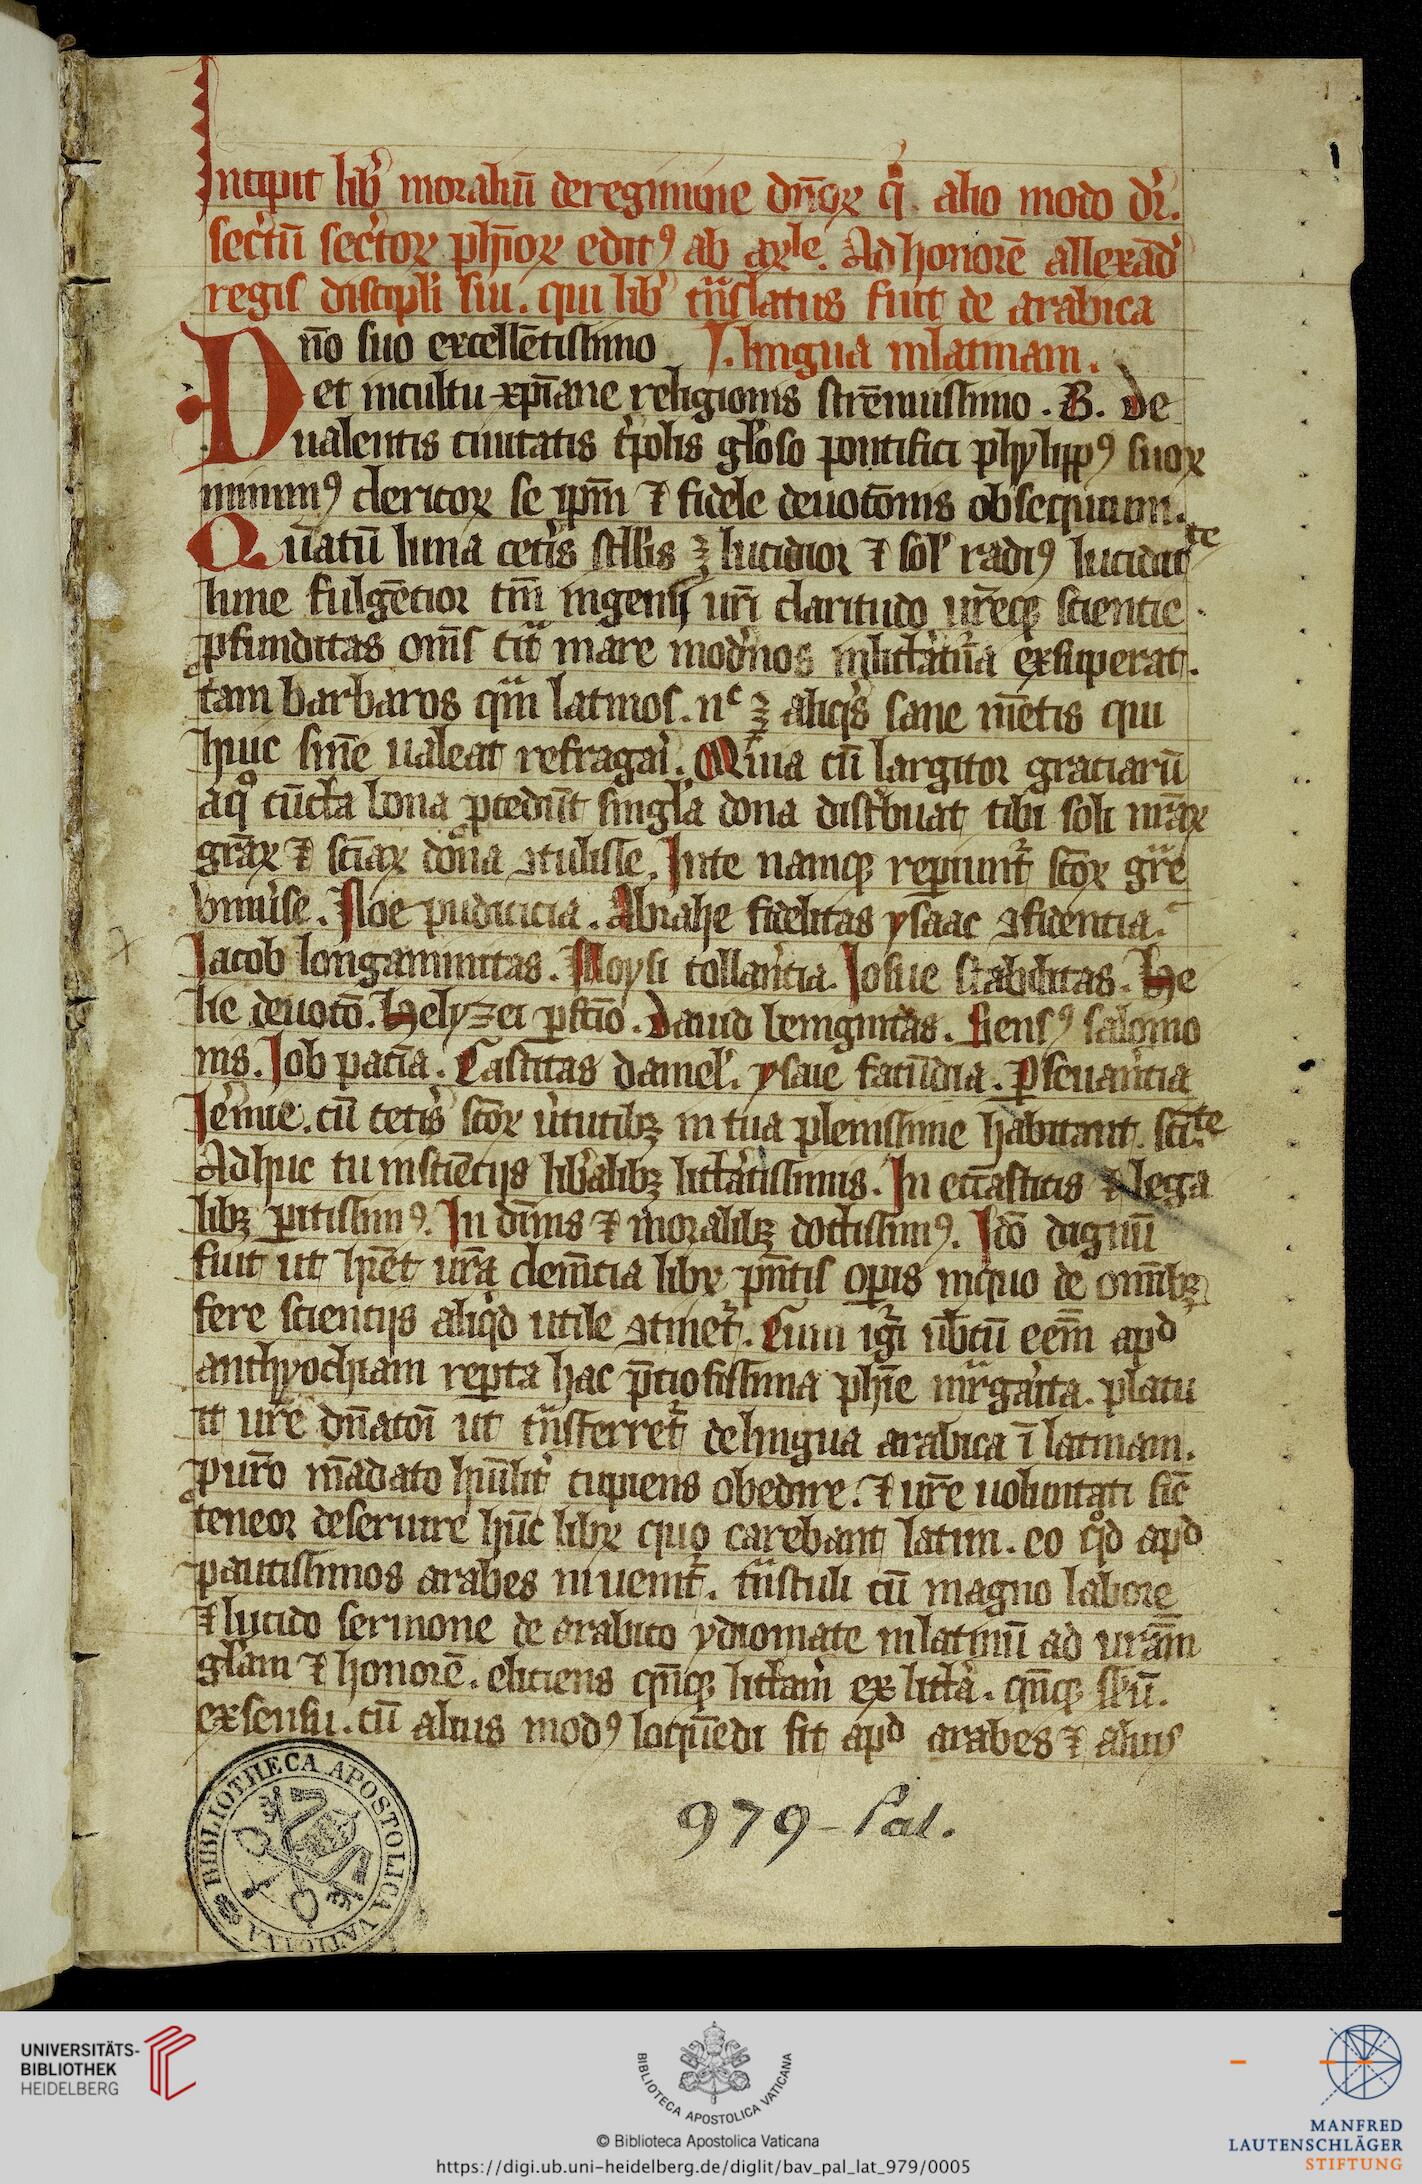 1
Incipit lib̾ moraliū de regimine dn̄oꝝ qͥ alio modo dr̄.
secͬtū secͬtoꝝ ph̄ioꝝ editꝰ ab arͥle. Ad honorē allexād̾
regis discipl̾i sui. qui lib̾ tͣnslatus fuit de arabica
lingua in latinam.
Dn̄o suo excellētissimo
et in cultu xp̄iane religionis strēnuissimo. G. de
ualentis ciuitatis tͥpolis gl̾oso pontifici phylippꝰ suoꝝ
minimꝰ clericoꝝ se ip̄m ⁊ fidele deuotōnis obsequium.
Quātū luna cetͥs stell̾is ꝫ lucidior ⁊ sol̾ radiꝰ luciditͭᵉ
lune fulgētior tm̄ ingenij ur̄i claritudo ur̄eqꝫ scientie
ꝓfunditas om̄s citͣ mare mod̾nos in litt̾atͬa exsuperat.
tam barbaros qͣm latinos. nᶜ ꝫ aliqͥs sane mētis qui
huic sn̄ie ualeat refragar̾i. Quia cū largitor gratiarū
a qͦ cūcta bona ꝓcedūt singl̾a dona distͥbuat tibi soli mͬaꝝ
gr̄aꝝ ⁊ sci̅aꝝ dona ꝯtulisse. In te namqꝫ reꝑiuntͬ scōꝝ grͣe
vniu̾se. Noe pudicicia. Abrahe fidelitas ysaac ꝯfidentia.
Jacob longanimitas. Moysi toll̾antia. Josue stabilitas. He
lie deuotō. Helyzei ꝑfctīo. Dauid benignitas. Sensꝰ salomo
nis. Job patīa. Castitas daniel̾. ysaie facūdia. ꝑseuͣantia
Jer̾mie. cū cetͥs scōꝝ u̾tutibꝫ in tua plenissime habitant scͥtͭᵉ
Ad huc tu in sciētijs lib̾alibꝫ litt̾atissimus. In ecc̄asticis ⁊ lega
libꝫ ꝑitissimꝰ. In diuīs ⁊ moralibꝫ doctissimꝰ. Idō dignū
fuit ut hr̄et ur̄a clem̄tia libꝝ pn̄tis oꝑis in quo de omnibꝫ
fere scientijs aliqͥd utile ꝯtinetͬ. Cum igͥ ub̾tū eēm apᵈ
anthyochiam reꝑta hac p̄ciosissima ph̄ie mͣrgaͥta. placu
it ur̄e dn̄atōi ut tͣnsferretͬ de lingua arabica ī latinam.
Porͬo mādato hūilit̾ cupiens obedire. ⁊ ur̄e uoluntati sic̄
teneor deseruire hūc libꝝ quo carebant latini. eo qͦd apᵈ
paucissimos arabes inuenitͬ. tͣnstuli cū magno labore
⁊ lucido sermone de arabico ydiomate in latinū ad ur̄am
gl̾am ⁊ honorē. eliciens qn̄qꝫ litt̾am ex litt̾a. qn̄qꝫ sēsū.
ex sensu. cū alius modꝰ loquēdi sit apᵈ arabes ⁊ alius
979 - Pal.
BIBLIOTHECA APOSTOLICA VATICANA
UNIVERSITÄTS-
BIBLIOTHEK
HEIDELBERG
BIBLIOTECA APOSTOLICA VATICANA
© Biblioteca Apostolica Vaticana
https://digi.ub.uni-heidelberg.de/diglit/bav_pal_lat_979/0005
MANFRED
LAUTENSCHLÄGER
STIFTUNG